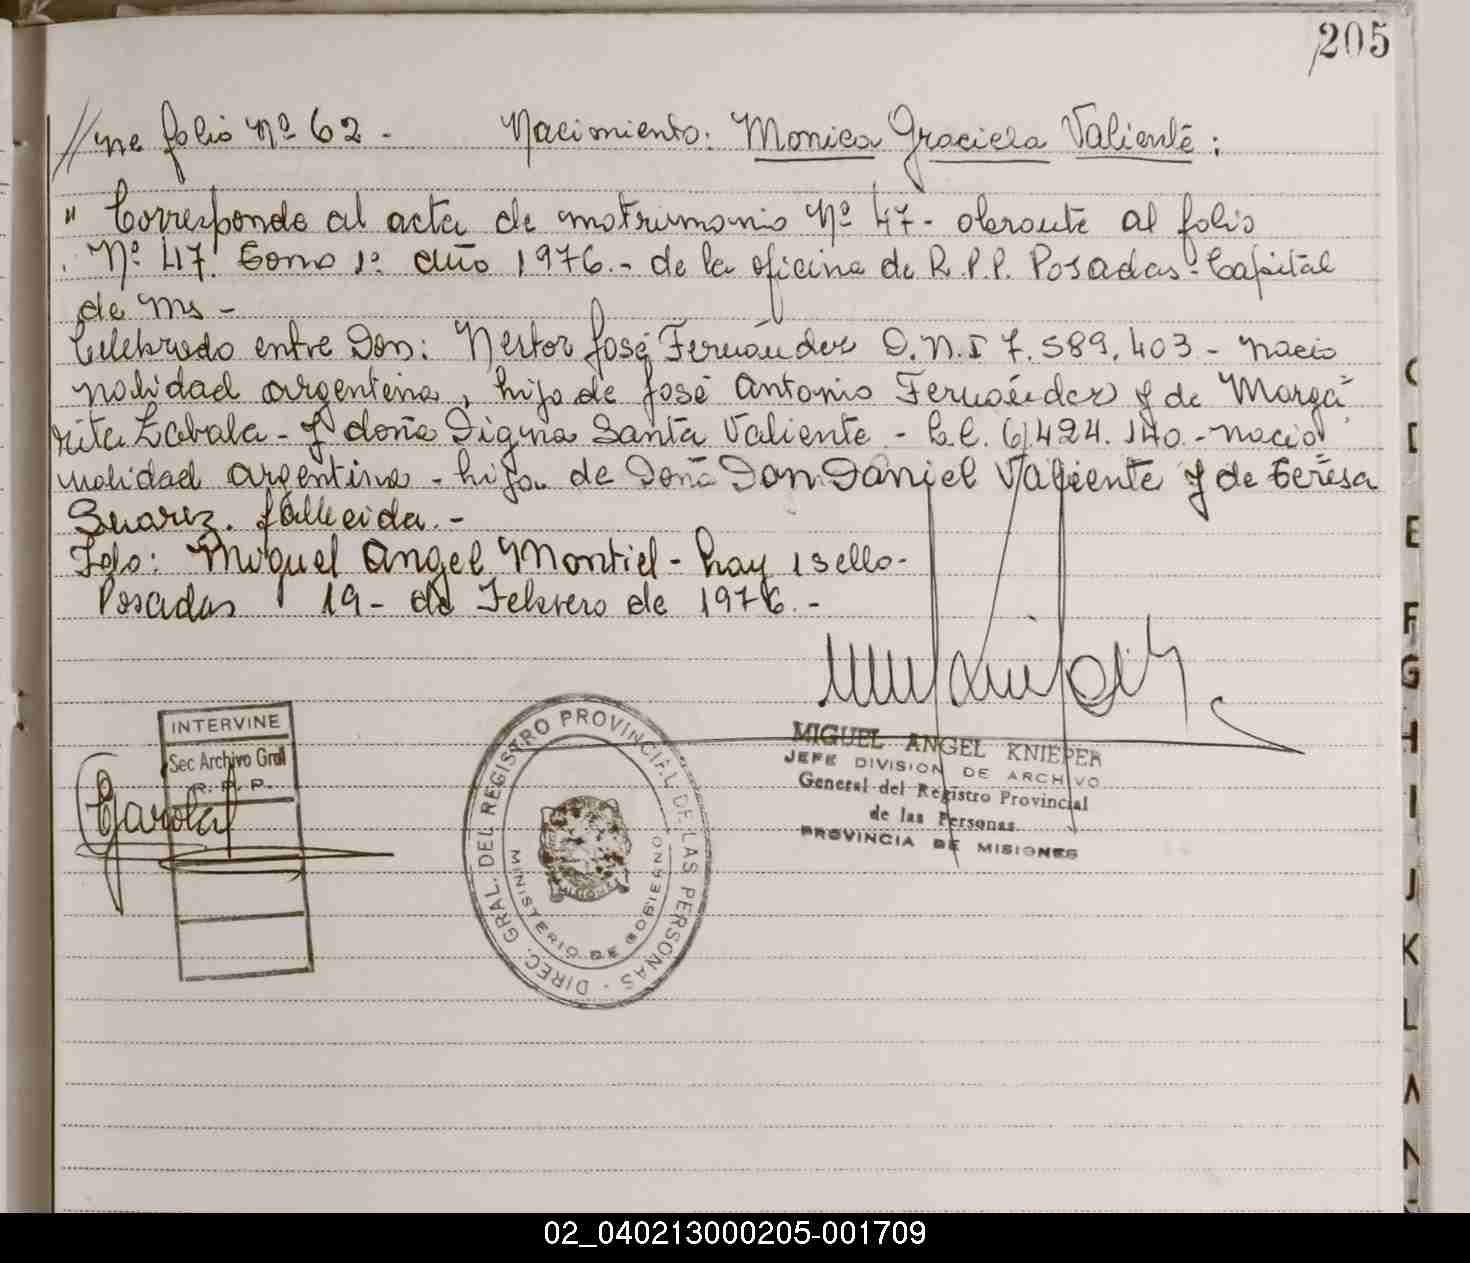 205
// ne folio Nº 62 - Nacimiento: Monica Graciela Valiente:
" Corresponde al acta de matrimonio Nº 47 - obrante al folio
Nº 47. Tomo 1º año 1976.- de la oficina de R.P.P. Posadas - Capital
de Ms -
Celebrado entre Don: Nestor José Fernández D.N.I 7.589.403 - nacio
nalidad argentina, hijo de José Antonio Fernández y de Marga
rita Zabala - y doña Digna Santa Valiente - L.C. 6.424.140.- nacio
nalidad argentina - hija de Doña Don Daniel Valiente y de Teresa
Suarez. fallecida.-
Fdo: Miguel Angel Montiel - hay 1 sello -
Posadas 19 - de Febrero de 1976.-
INTERVINE
Sec Archivo Gral
R. P. P.
DIREC. GRAL. DEL REGISTRO PROVINCIAL DE LAS PERSONAS
MINISTERIO DE GOBIERNO
MISIONES
MIGUEL ANGEL KNIEPER
JEFE DIVISION DE ARCHIVO
General del Registro Provincial
de las Personas
PROVINCIA DE MISIONES
C
D
E
F
G
H
I
J
K
L
N
02_040213000205-001709